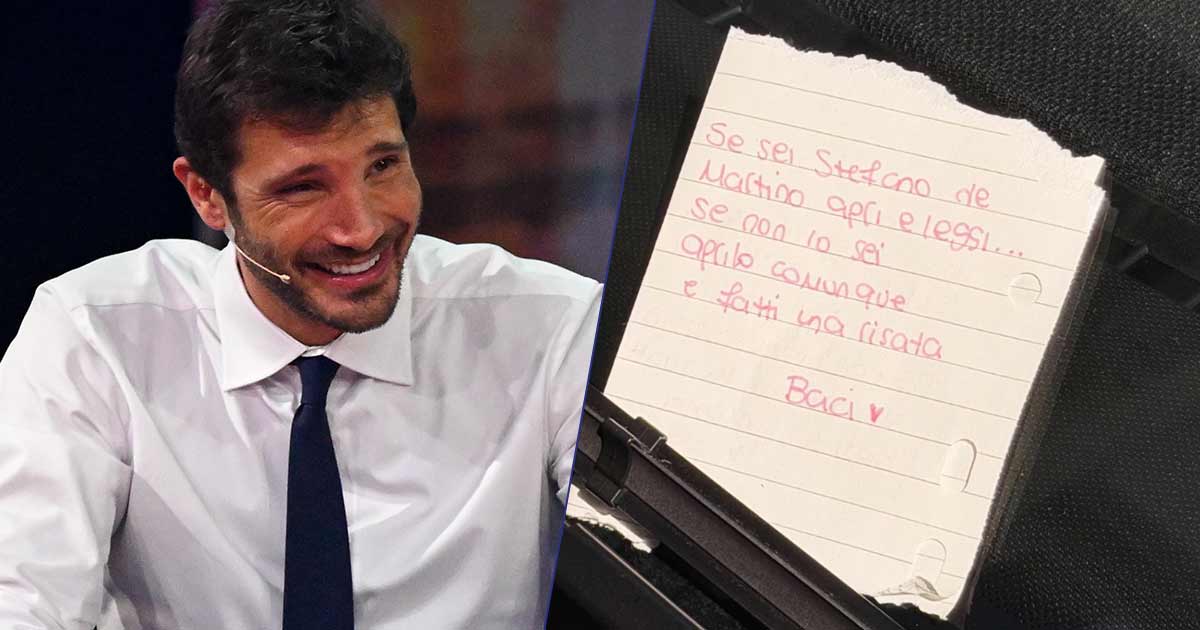 Se sei Stefano de
Martino apri e leggi...
se non lo sei
aprilo comunque
e fatti una risata
Baci ♥